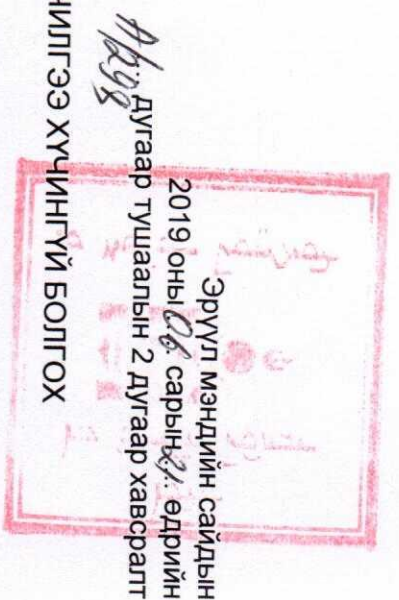 Эрүүл мэндийн сайдын
2019 оны 06 сарын 21 өдрийн
дугаар тушаалын 2 дугаар хавсралт
ИЛГЭЭ ХҮЧИНГҮЙ БОЛГОХ